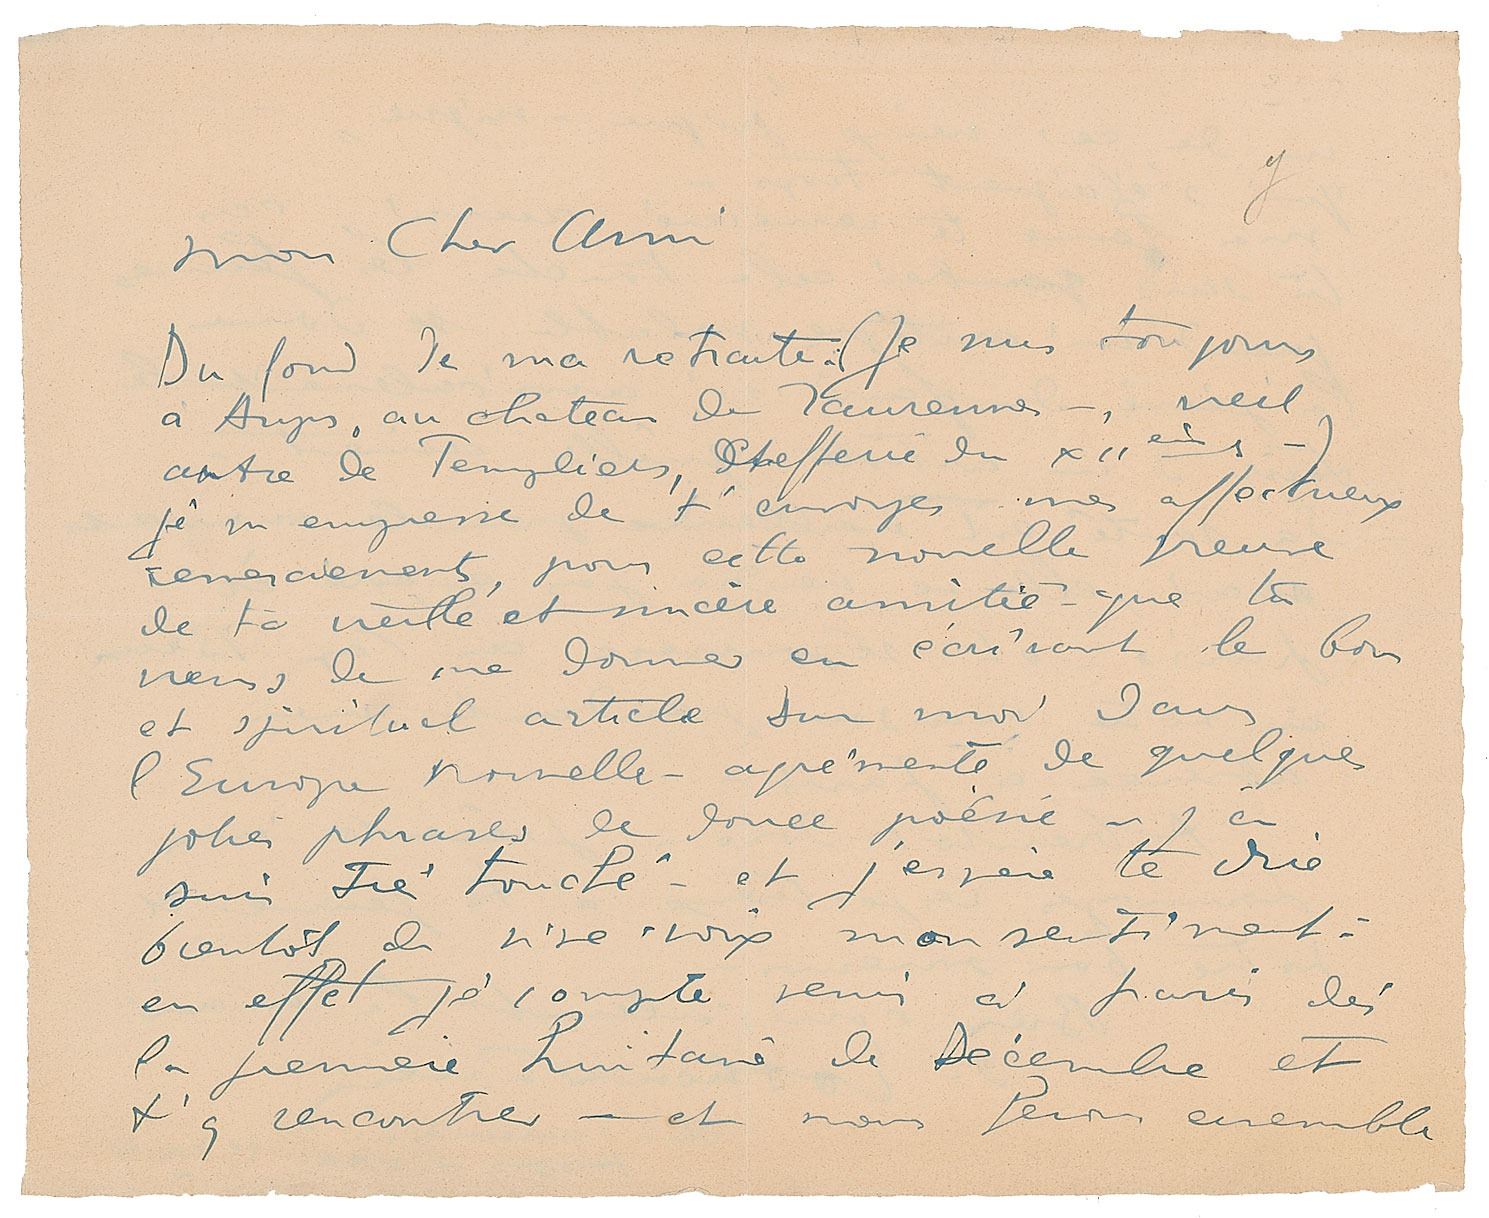 y
mon Cher Ami
Du fond de ma retraite (je suis toujours
à Aups, au chateau de Taurenne –, vieil
antre de Templiers, Chefferie du XIIème s –)
je m'empresse de t'envoyer mes affectueux
remerciements, pour cette nouvelle preuve
de ta vieille et sincère amitié – que tu
viens de me donner en écrivant le bon
et spirituel article sur moi dans
l'Europe nouvelle – agrémenté de quelques
jolies phrases de douce poésie – j'en
suis très touché – et j'espère te dire
bientôt de vive voix mon sentiment :
en effet je compte venir à Paris dès
la première huitaine de Décembre et
t'y rencontrer – et nous ferons ensemble